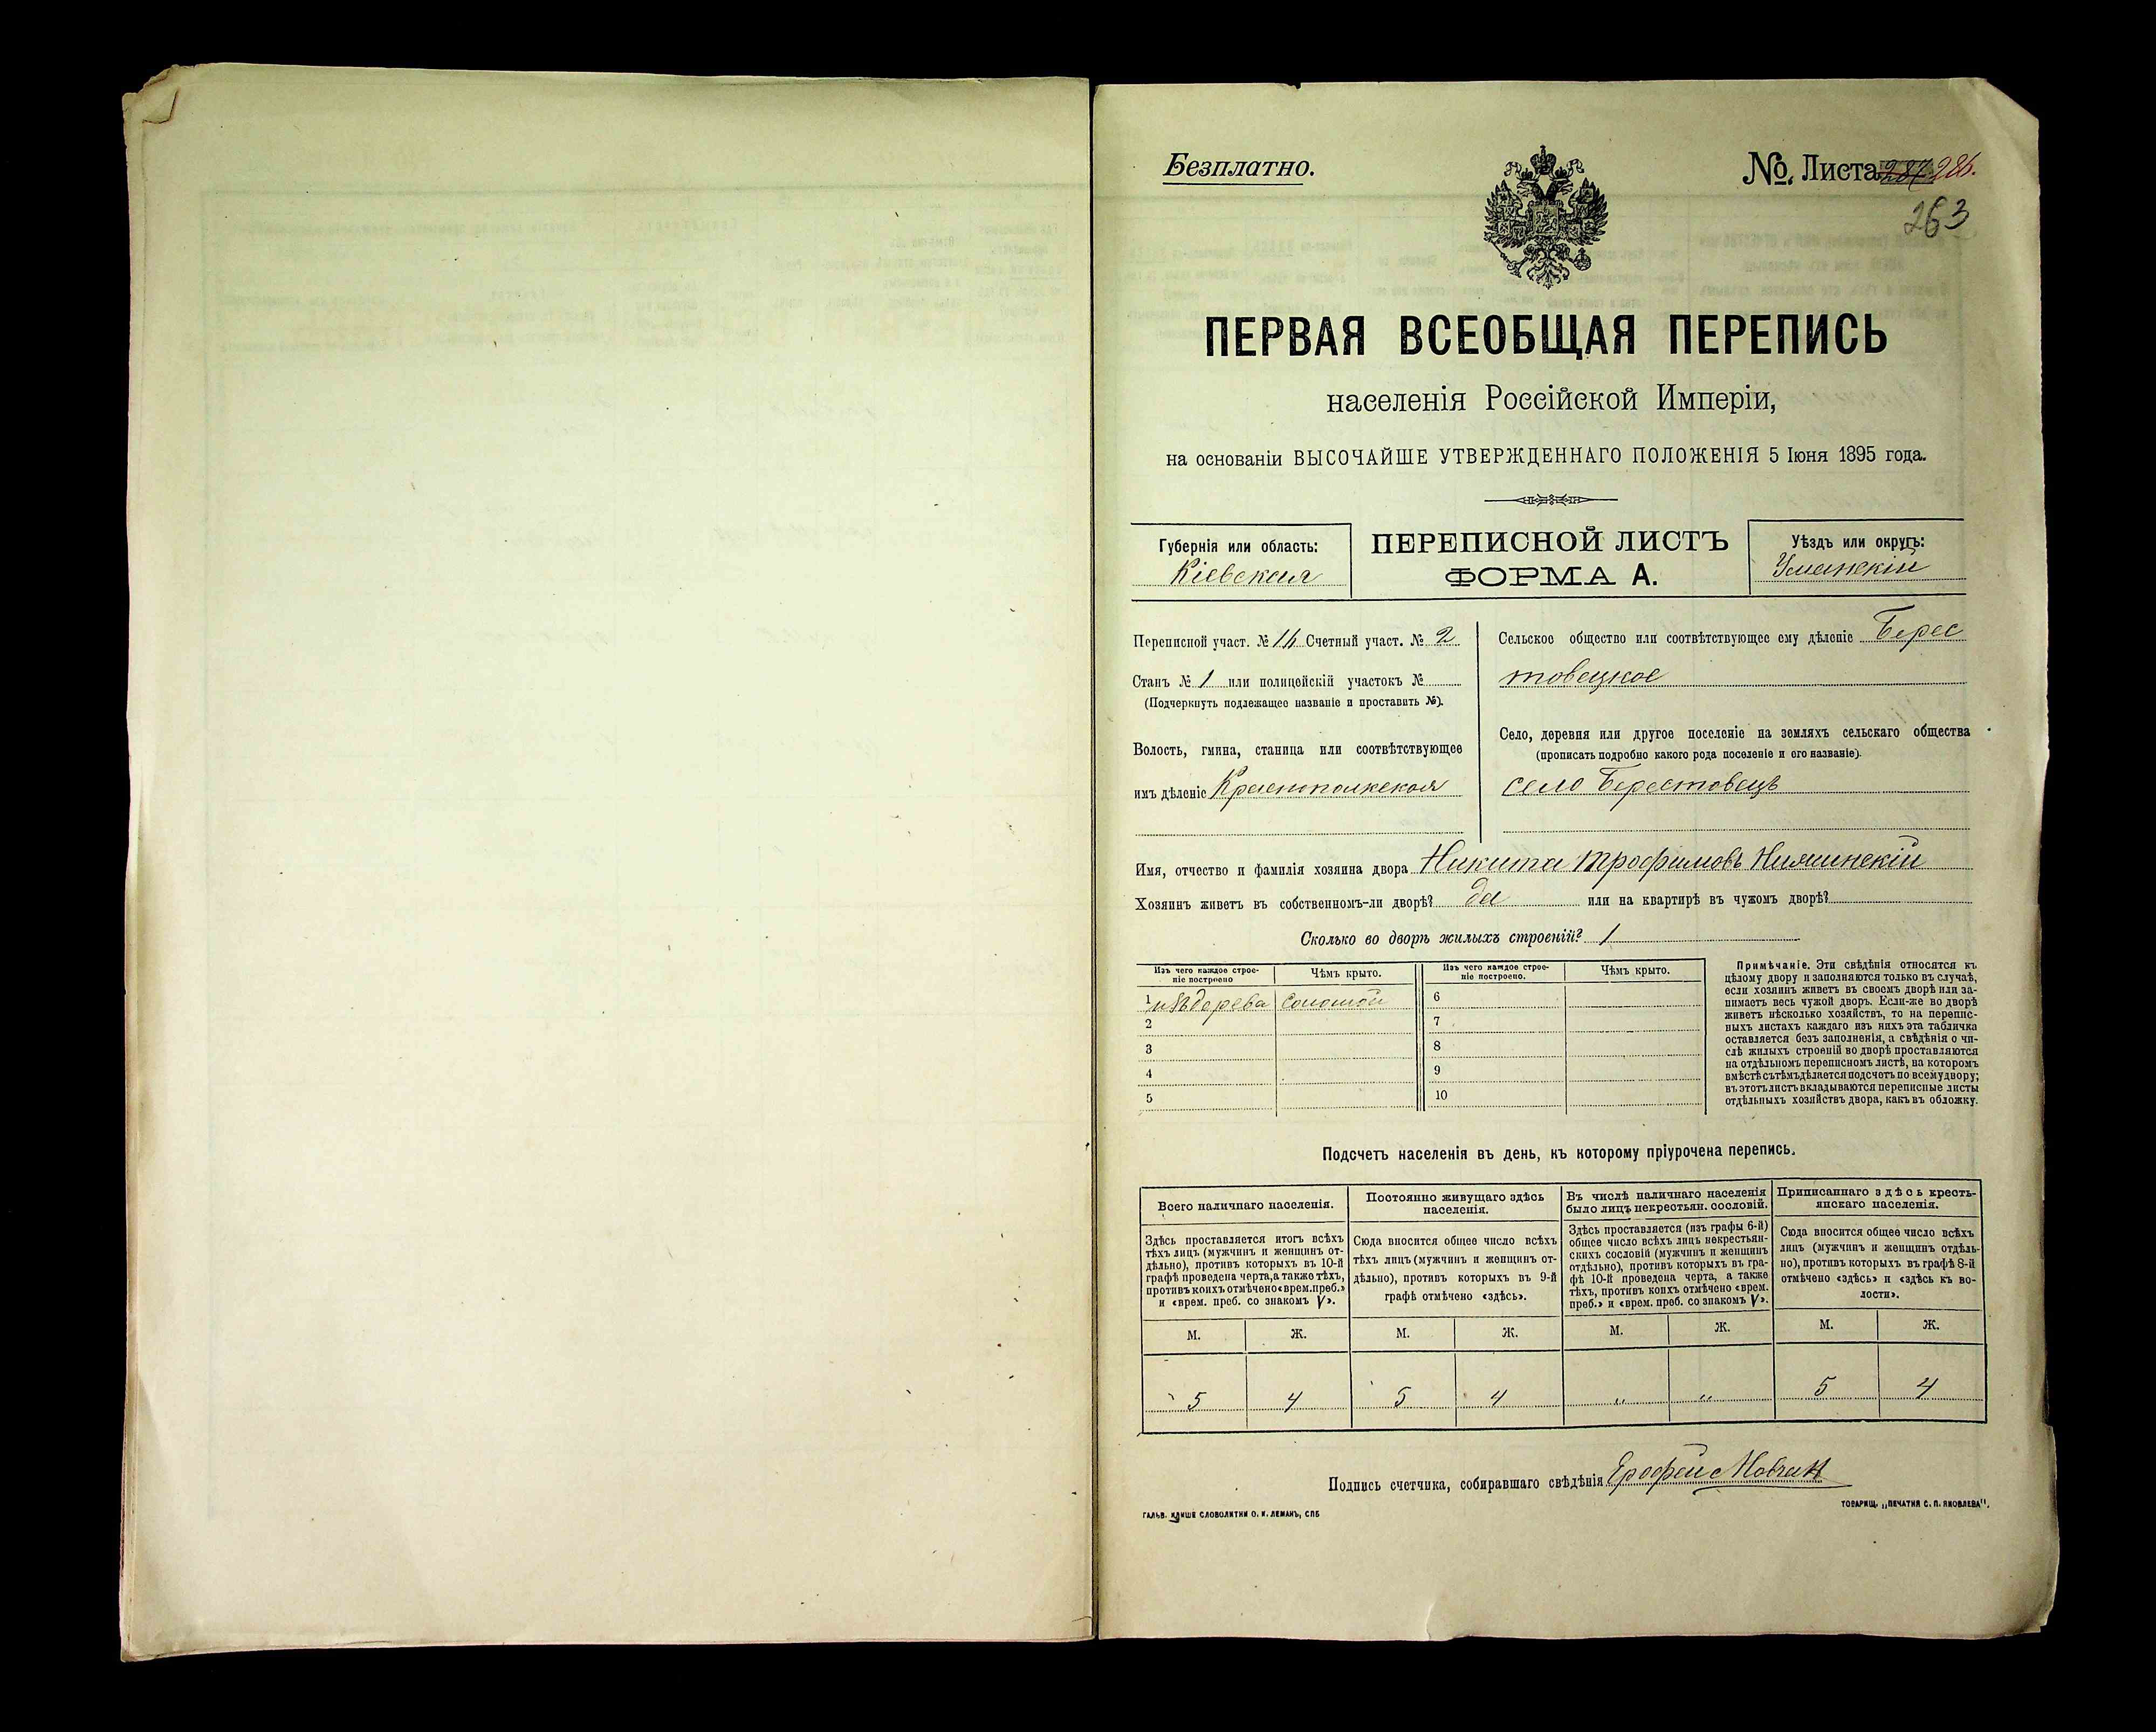 Безплатно.
№ Листа 286.
263
ПЕРВАЯ ВСЕОБЩАЯ ПЕРЕПИСЬ
населенія Россійской Имперіи,
на основаніи ВЫСОЧАЙШЕ УТВЕРЖДЕННАГО ПОЛОЖЕНІЯ 5 Іюня 1895 года.
Губернія или область:
Кіевская
ПЕРЕПИСНОЙ ЛИСТЪ
ФОРМА А.
Уѣздъ или округъ:
Уманскій
Переписной участ. № 14 Счетный участ. № 2
Станъ № 1 или полицейскій участокъ №
(Подчеркнуть подлежащее названіе и проставить №).
Волость, гмина, станица или соотвѣтствующее
имъ дѣленіе Краснополкская
Сельское общество или соотвѣтствующее ему дѣленіе Берес
товецкое
Село, деревня или другое поселеніе на земляхъ сельскаго общества
(прописать подробно какого рода поселеніе и его названіе).
село Берестовецъ
Имя, отчество и фамилія хозяина двора Никита Трофимовъ
Хозяинъ живетъ въ собственномъ-ли дворѣ? да или на квартирѣ въ чужомъ дворѣ?
Сколько во дворѣ жилыхъ строеній? 1
Изъ чего каждое строе-
ніе построено
Чѣмъ крыто.
Изъ чего каждое строе-
ніе построено.
Чѣмъ крыто.
1 изъ дерева соломой
2
3
4
5
6
7
8
9
10
Примѣчаніе. Эти свѣдѣнія относятся къ
цѣлому двору и заполняются только въ случаѣ,
если хозяинъ живетъ въ своемъ дворѣ или за-
нимаетъ весь чужой дворъ. Если-же во дворѣ
живетъ нѣсколько хозяйствъ, то на перепис-
ныхъ листахъ каждаго изъ нихъ эта табличка
оставляется безъ заполненія, а свѣдѣнія о чи-
слѣ жилыхъ строеній во дворѣ проставляются
на отдѣльномъ переписномъ листѣ, на которомъ
вмѣстѣ съ тѣмъ дѣлается подсчетъ по всему двору;
въ этотъ листъ вкладываются переписные листы
отдѣльныхъ хозяйствъ двора, какъ въ обложку.
Подсчетъ населенія въ день, къ которому пріурочена перепись.
Всего наличнаго населенія.
Здѣсь проставляется итогъ всѣхъ
тѣхъ лицъ (мужчинъ и женщинъ от-
дѣльно), противъ которыхъ въ 10-й
графѣ проведена черта, а также тѣхъ,
противъ коихъ отмѣчено «врем. преб.»
и «врем. преб. со знакомъ V».
Постоянно живущаго здѣсь
населенія.
Сюда вносится общее число всѣхъ
тѣхъ лицъ (мужчинъ и женщинъ от-
дѣльно), противъ которыхъ въ 9-й
графѣ отмѣчено «здѣсь».
Въ числѣ наличнаго населенія
было лицъ некрестьян. сословій.
Здѣсь проставляется (изъ графы 6-й)
общее число всѣхъ лицъ некрестьян-
скихъ сословій (мужчинъ и женщинъ
отдѣльно), противъ которыхъ въ гра-
фѣ 10-й проведена черта, а также
тѣхъ, противъ коихъ отмѣчено «врем.
преб.» и «врем. преб. со знакомъ V».
Приписаннаго здѣсь кресть-
янскаго населенія.
Сюда вносится общее число всѣхъ
лицъ (мужчинъ и женщинъ отдѣль-
но), противъ которыхъ въ графѣ 8-й
отмѣчено «здѣсь» и «здѣсь къ во-
лости».
М. Ж. М. Ж. М. Ж. М. Ж.
5 4 5 4 " " 5 4
Подпись счетчика, собиравшаго свѣдѣнія Ерофей Мовчан
ГАЛЬВ. КЛИШЕ СЛОВОЛИТНИ О. И. ЛЕМАНЪ, СПБ
ТОВАРИЩ. „ПЕЧАТНЯ С. П. ЯКОВЛЕВА".